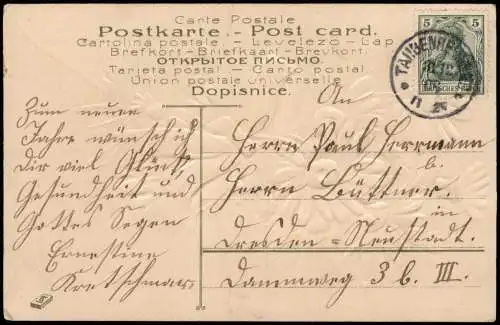 Carte Postale
Postkarte. - Post card.
Cartolina postale. - Levelezö-Lap
Brefkort-Briefkaart-Brevkort.
ОТКРЫТОЕ ПИСЬМО.
Tarjeta postal - Carto postal
Union postale universelle
Dopisnice.
5 5
DEUTSCHES REICH
Zum neuen
Jahre wünsch ich
Dir viel Glück,
Gesundheit und
Gottes Segen
Ernestine
Kretschmar.
An
Herrn Paul Herrmann
b.
Herrn Büttner.
in
Dresden-Neustadt.
Dammweg 3 b. III.